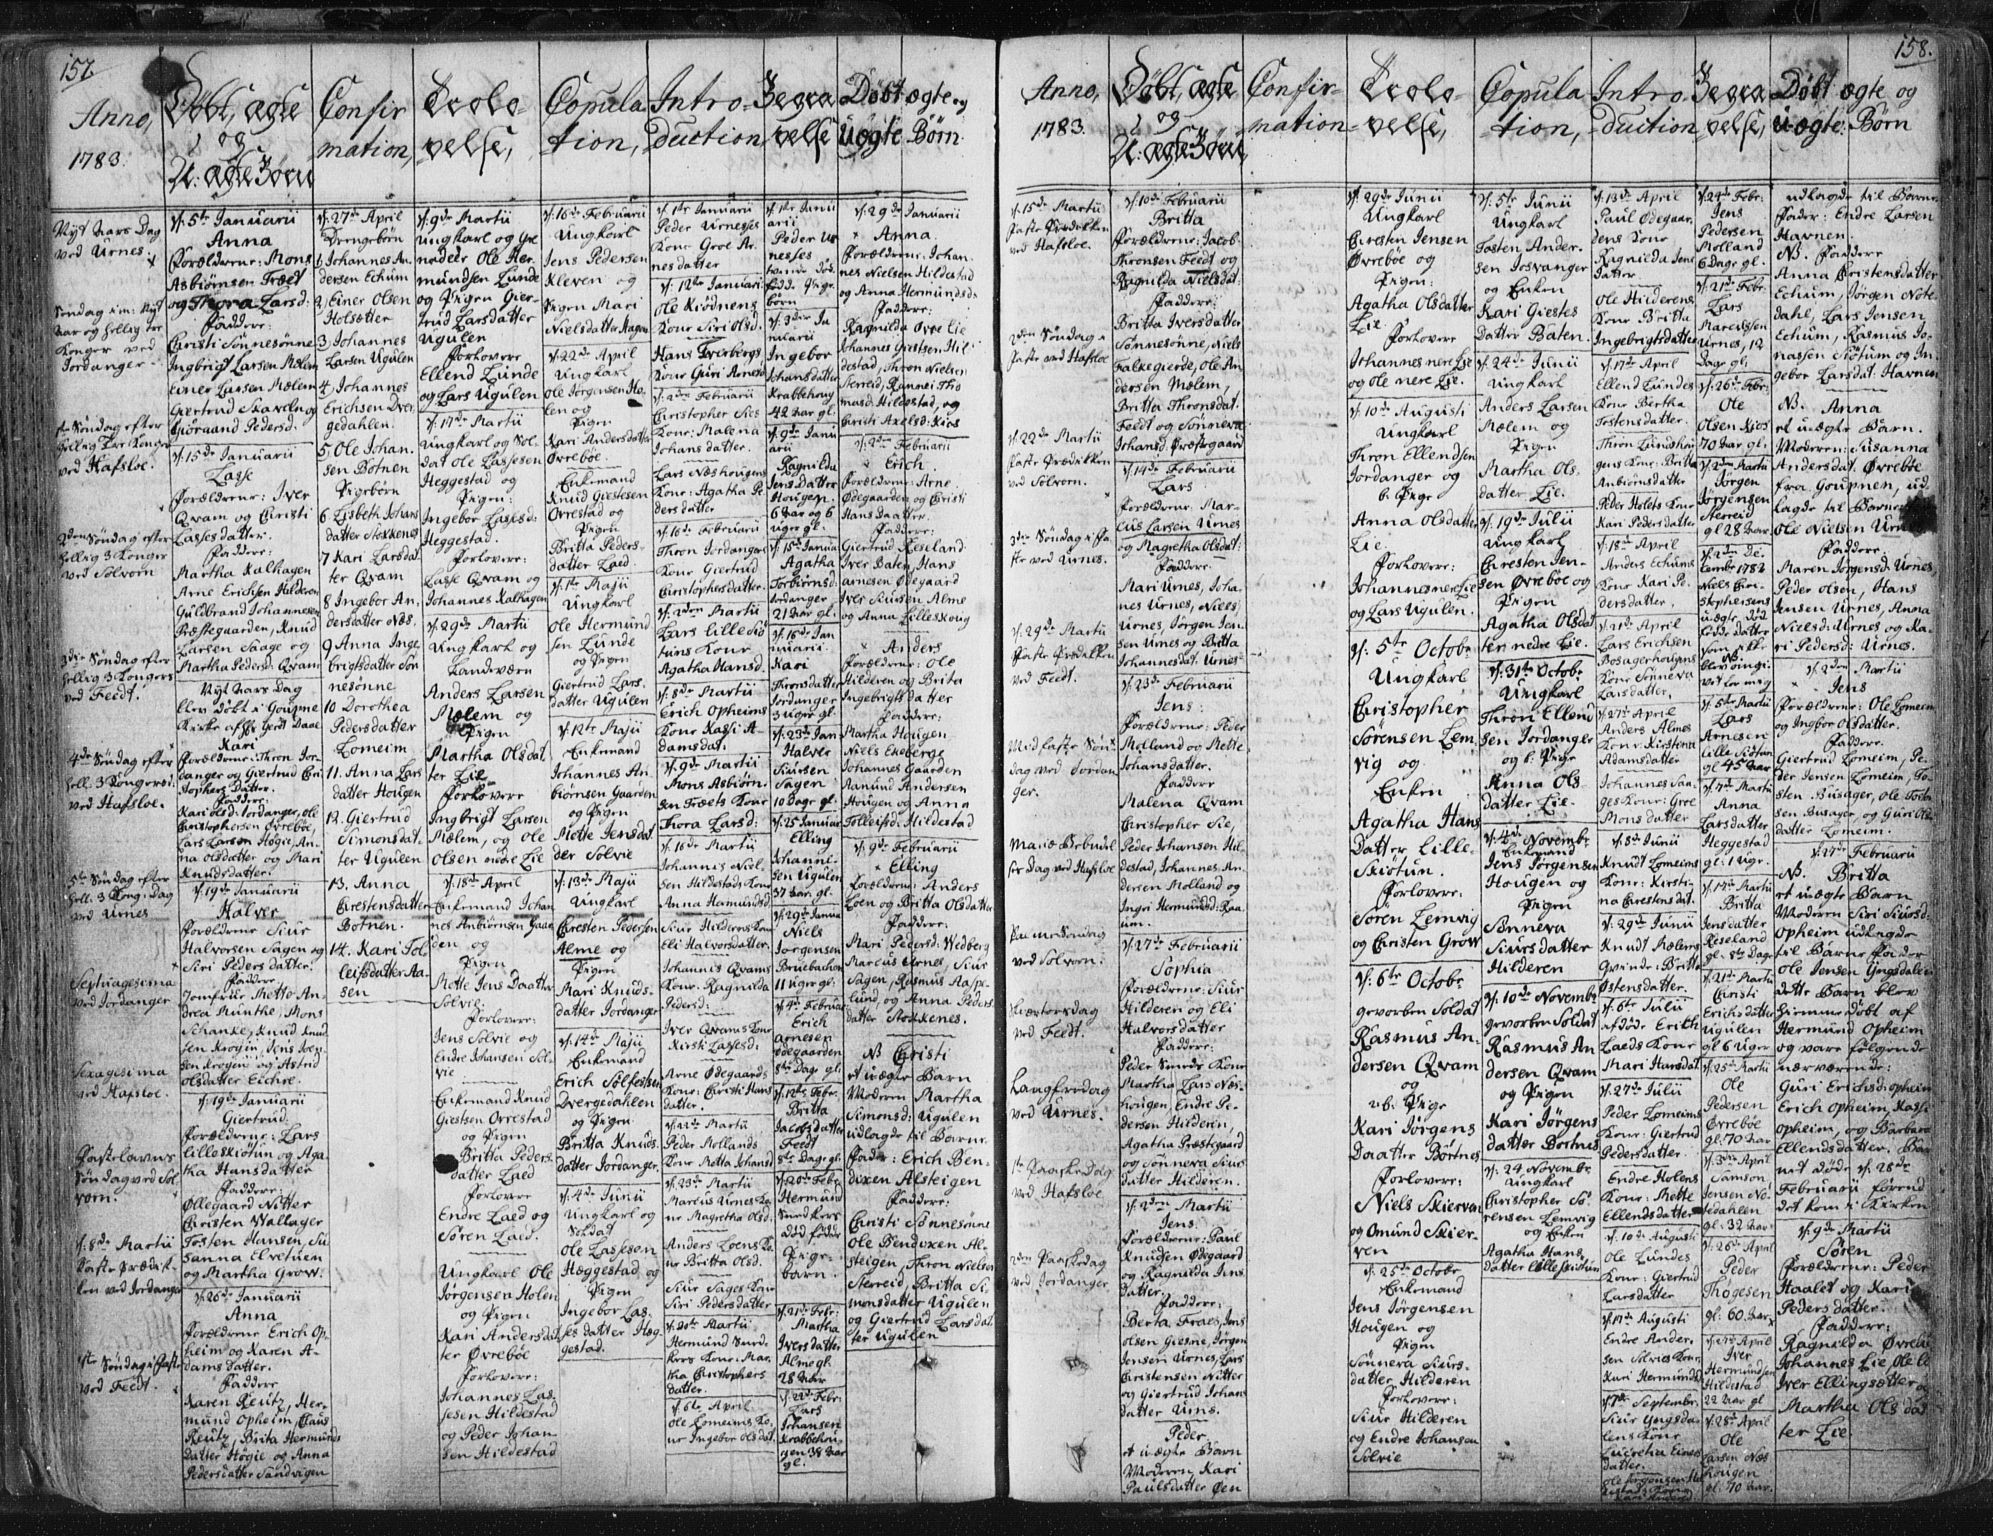 157.
Anno,
1783.
Nyt Aars Dag
ved Urnes.
Søndag im: Nyt
Aar og hellig tre
Konger ved
Jordanger
1ste Søndag efter
hellig tre Konger
ved Hafsloe.
2den Søndag efter
hellig 3 Konger
ved Solvorn
3die Søndag efter
hellig 3 Konger
ved Feedt.
4de Søndag efter
hell. 3 Konger
ved Hafsloe.
5te Søndag efter
hell. 3 Kong. Dag
ved Urnes
Septuagesima
ved Jordanger
Sexagesima
ved Hafsloe.
Fastelavns
Søndag ved Sol-
vorn.
d. 8de Martii
Faste Prædik-
ken ved Jordanger
1ste Søndag i Faste
ved Feedt.
Døbt, ægte
og
U: ægte Børn
d. 5te Januarii
Anna
Forældrene: Mons
Asbiörnsen Fræet
og Thora Larsd:
Faddere:
Christi Sönnesönne
Ingbrigt Larsen Mælem
Einer Larsen Mælem
Giertrud Skaveln og
Giöraand Pedersd.
d. 15de Januarii
Lasse
Forældrene: Iver
Qvam og Christi
Lassesdatter.
Faddere:
Martha Kalhagen
Arne Erichsen Hilderen
Guldbrand Johannesen
Præstegaarden, Knud
Larsen Saage og
Martha Pedersd: Qvam
Nyt Aars Dag
blev døbt i Goupne
Kirke af Hr. Gert Daae
Kari
Forældrene: Thron Jor-
danger og Giertrud Chri-
stophers Datter.
Faddere:
Kari Olsd: Jordanger, Ole
Christophersen Øvrebøe,
Lars Larsen Høgie, An-
na Olsdatter og Mari
Knudsdatter.
d. 19de Januarii
Halver
Forældrene Siur
Halvorsen Sagen og
Siri Peders datter.
Faddere
Jomfrue Mette An-
drea Munthe, Mons
Schanke, Knud Knud
sen Krogen, Jens Joen-
sen Krogen og Astrid
Olsdatter Eichre.
d. 19de Januarii
Giertrud.
Forældrene: Lars
Lilleskiötun og Aga-
tha Hansdatter
Faddere
Øllegaard Nitter
Christen Wallager
Tosten Hansen, Su-
sanna Elvetuen
og Martha Grow.
d. 26de Januarii
Anna
Forældrene Erich Op-
heim og Karen A-
dams datter.
Faddere
Karen Reutz, Her-
mund Opheim, Claus
Reutz, Brita Hermunds
datter Høgie og Anna
Pedersdatter Sandvigen
Confir
mation,
d. 27de April
Drengebörn
1 Johannes An-
dersen Echum
2, Einer Olsen
Holsetter
3 Johannes
Larsen Ugulen
4, Johannes
Erichsen Dver-
gedahlen.
5, Ole Johan-
sen Botnen
Pigebörn
6 Lisbeth Johans
datter Stokkenes
7 Kari Larsdat-
ter Qvam
8 Ingebor An-
dersdatter Næs.
9 Anna Inge-
brigtsdatter Sön
nesönne
10 Dorothea
Pedersdatter
Lomeim
11. Anna Lars
datter Hougen
12. Giertrud
Simonsdat-
ter Ugulen
13. Anna
Chrestensdatter
Botnen.
14. Kari Tol-
leifsdatter Aa-
sen
Trolo-
velse,
d. 9de Martii
Ungkarl og Gre-
nadeer Ole Her-
mundsen Lunde
og Pigen Gier-
trud Larsdatter
Ugulen
Forlovere
Ellend Lunde
og Lars Ugulen
d. 17de Martii
Ungkarl og Sol-
dat Ole Lassesen
Heggestad og
Pigen:
Ingebor Lassesd:
Heggestad.
Forlovere:
Lasse Qvam og
Johannes Kalhagen
d. 29de Martii
Ungkarl og
Landværn
Anders Larsen
Mælem og
Pigen
Martha Olsdat-
ter Lie
Forlovere
Ingbrigt Larsen
Mælem, og Ole
Olsen nedre Lie
d. 18de April
Enkemand Johan
nes Anbiörnsen Gaar-
den og
Pigen
Mette Jens Daatter
Solvie:
Forlovere:
Jens Solvie og
Endre Johansen Sol-
vie
Enkemand Knud
Giestsen Orrestad
og Pigen
Britta Peders-
datter Laed
Forlovere
Endre Laed og
Sören Laed.
Ungkarl Ole
Jörgensen Holen
og Pigen
Kari Andersdat-
ter Øvrebøe
Forlovere:
Johannes Las-
sesen Hildestad
og Peder Johan-
sen Hildestad
Copula
tion,
d. 16de Februarii
Ungkarl
Jens Pedersen
Kleven og
Pigen Mari
Nielsdatter Hagen
d. 22de April
Ungkarl
Ole Jörgensen Ho-
len og
Pigen
Kari Andersdatter
Øvrebøe.
Enkemand
Knud Giestesen
Orrestad og
Pigen
Britta Peders-
datter Laed.
d. 1ste Maji
Ungkarl
Ole Hermund
sen Lunde
og Pigen
Giertrud Lars-
datter Ugulen
d. 12te Maji
Enkemand
Johannes An-
biörnsen Gaarden
og Pigen
Mette Jensdat
der Solvie
d. 13de Maji
Ungkarl
Christen Pedersen
Alme og
Pigen
Mari Knuds-
datter Jordanger
d. 14de Maji
Enkemand
Erich Solfestsen
Dvergedahlen
og Pigen
Britta Knuds-
datter Jordanger
d. 4de Junii
Ungkarl og
Soldat
Ole Lassesen
Hæggestad og
Pigen
Ingebor Las-
ses datter Heg-
gestad.
Intro-
duction
d. 1ste Januarii
Peder Urneses
Kone Groe Ar-
nesdatter
d. 12te Januarii
Ole Kiödnens
Kone Siri Olsd.
Hans Tverbergs
Kone Guri Arnesd.
d. 2den Februarii
Christopher Sies
Kone: Malena
Johansdatter.
Lars Næshougens
Kone: Agatha Pe-
dersdatter
d. 16de Februarii
Thron Jordangers
Kone Giertrud
Christophersdatter.
d. 2den Martii
Lars Lilleskiö-
tuns Kone
Agatha Hansd.
d. 8de Martii
Erich Opheims
Kone Kassi A-
damsdat.
d. 9de Martii
Mons Asbiörn-
sen Fræets Kone
Thora Larsd:
d. 16de Martii
Johannis Niel-
sen Hildestads Kone
Anna Hermundsd.
Siur Hilderens Kone
Eli Halvorsdatter.
Johannis Qvams
Kone Ragnilda
Pedersd:
Iver Qvams Kone
Kirsti Lassesd:
Arne Ødegaards
Kone: Christi Hans
datter.
Peder Mollands
Kone Metta Johansd
d. 23de Martii
Marcus Urnes Ko-
ne Magretha Olsd:
Anders Loens Ko-
ne Britta Olsd.
Siur Sages Kone
Siri Pedersdatter
d. 30te Martii
Hermund Smed-
kers Kone: Mar-
tha Christophers
datter.
d. 6te April
Ole Lomeims Ko-
ne Ingebor Olsdat.
Begra
velse
d. 1ste Janu
arii
Peder Ur-
nesses
tvende död-
född. Pige-
börn
d. 3die Ja-
nuarii
Ingebor
Johansdatter
Krabbehoug
42 Aar gl.
d. 9de Janu
arii
Ragnilda
Jensdatter
Hougen
6 Aar og 6
uger gl.
d. 15de Janua
Agatha
Torbiörnsd.
Jordanger
21 Aar gl.
d. 16de Jan
uarii.
Kari
Thronsdatter
Jordanger
3 uger gl.
d. 23de Jan
Halver
Siursen
Sagen
10 Dage gl.
d. 25 Januar
Elling
Johanne-
sen Ugulen
37 Aar gl.
d. 29de Janua
Niels
Jörgensen
Bruebachen
11 uger gl.
d. 4de Februar
Erich
Arnesen
Ødegaarden
8te Dage gl.
d. 12te Febr.
Britta
Jacobsdatter
Feedt
8te Dage gl.
d. 20de Febr
Hermund
Smedkers
död föd
Pige-
barn.
d. 21de Febr
Martha
Iversdatter
Alme gl.
28 Aar
d. 22de Febr:
Lars
Johansen
Krabbehou-
gen 38 Aar
gl.
Døbt ægte og
Uægte Børn
d. 29de Januarii
Anna.
Forældrene: Johan-
nes Nielsen Hildestad
og Anna Hermundsd:
Faddere:
Ragnilda Øvre Lie
Johannes Giestsen Hil-
destad, Thron Nielsen
Sterreid, Rannei Tho-
masd Hildestad, og
Christi Axelsd: Kios
d. 2den Februarii
Erich.
Forældrene: Arne
Ødegaarden og Christi
Hans Daatter.
Faddere:
Giertrud Reseland
Iver Baten, Hans
Arnesen Ødegaard
Iver Siursen Alme
og Anna Lilleskoug
Anders
Forældrene: Ole
Hilderen og Brita
Ingebrigts datter
Faddere:
Martha Hougen
Niels Ekeberge
Johannes Gaarden
Aamund Andersen
Hougen og Anna
Tolleifsd: Hildestad
d. 9de Februarii
Elling
Forældrene: Anders
Loen og Britta Olsdatter
Faddere:
Mari Pedersd: Wedberg
Marcus Urnes, Siur
Sagen, Rasmus Aaspe-
lund, og Anna Peders-
datter Stokkenes.
NB Christi
et uægte Barn
Moderen Martha
Simonsd: Ugulen
udlagde til Barne
Fader: Erich Ben-
dixen Alsteigen
Faddere:
Christi Sønnesönne
Ole Bendixen Al-
steigen, Thron Nielsen
Sterreid, Britta Si-
monsdatter Ugulen
og Giertrud Larsdat-
ter Ugulen
158.
Anno,
1783
d. 15de Martii
Faste Prædikken
ved Hafsloe.
2den Søndag i
Faste ved Hafsloe
d. 22de Martii
Faste Prædikken
ved Solvorn.
3die Søndag i Fa-
ste ved Urnes.
d. 29de Martii
Faste Prædikken
ved Feedt
Midfaste Søn-
dag ved Jordan-
ger.
Mariæ Bebudel
ses Dag ved Hafsloe
Palmesøndag
ved Solvorn:
Skiærtorsdag
ved Feedt.
Langfredag
ved Urnes.
1ste Paaskedag
ved Hafsloe
2den Paaskedag
ved Jordanger
Døbt, ægte
og
U: ægte Børn
d. 10de Februarii
Britta
Forældrene: Jacob
Thronsen Feedt og
Ragnilda Nielsdat.
Faddere:
Britta Iversdatter
Sønnesönne, Niels
Falkegierde, Ole An-
dersen Molem,
Britta Thronsdat.
Feedt og Sønneva
Johansd. Præstegaard
d. 14de Februarii
Lars
Forældrene: Mar-
cus Larsen Urnes
og Magretha Olsdat:
Faddere:
Mari Urnes, Joha-
nes Urnes, Niels
Urnes, Jörgen Jen-
sen Urnes og Britta
Johannesdat. Urnes
d. 23de Februarii
Jens:
Forældrene: Peder
Molland og Mette
Johansdatter.
Faddere
Malena Qvam
Christopher Sie,
Peder Johansen Hil-
destad, Johannes An-
dersen Molland og
Ingri Hermundsd: Raa-
um.
d. 27de Februarii
Sophia
Forældrene: Siur
Hilderen og Eli
Halvorsdatter
Faddere:
Peder Smeds Kone
Martha Lars Næs-
hougen, Endre Pe-
dersen Hilderen,
Agatha Præstgaard
og Sønneva Siurs
datter Hilderen.
d. 2den Martii
Jens:
Forældrene: Paul
Knudsen Ødegaard
og Ragnilda Jens
Datter
Faddere:
Berta Fræes, Jens
Olsen Giesme, Jörgen
Jensen Urnes, Lars
Christensen Nitter
og Giertrud Johans
datter Urns.
Peder
et uægte Barn
Moderen Kari
Paulsdatter Øen
Confir-
mation
Trolo-
velse,
d. 29de Junii
Ungkarl
Christen Jensen
Øvrebøe og
Pigen:
Agatha Olsdatter
Lie.
Forlovere
Johannes nere Lie
og Ole nere Lie.
d. 10de Augusti
Ungkarl
Thron Ellendsen
Jordanger og
b. Pige
Anna Olsdatter
Lie.
Forlovere:
Johannes nere Lie
og Lars Ugulen.
d. 5te Octobr
Ungkarl
Christopher
Sørensen Lem
vig og
Enken
Agatha Hans
Datter Lille-
Skiötun.
Forlovere:
Sören Lemvig
og Christen Grow
d. 6te Octobr
geworben Soldat
Rasmus An-
dersen Qvam
og
b: Pige
Kari Jörgens
Daatter Börtnes
Forlovere:
Niels Skierven
og Omund Skier-
ven
d. 25de Octobr
Enkemand
Jens Jörgensen
Hougen og
Pigen
Sönneva Siurs-
datter, Hilderen
Forlovere:
Siur Hilderen
og Endre Johansen
Solvie
Copula
tion,
d. 5te Junii
Ungkarl
Tosten Ander-
sen Josvanger
og Enken
Kari Giestes
Datter Baten.
d. 24de Junii
Ungkarl
Anders Larsen
Mælem og
Pigen
Martha Ols-
datter Lie.
d. 19de Julii
Ungkarl
Christen Jen-
sen Øvrebøe og
Pigen
Agatha Olsdat
ter nedre Lie.
d. 31te Octobr
Ungkarl
Thron Ellend
sen Jordanger
og b. Pige
Anna Ols-
datter Lie.
d. 4de Novembr
Enkemand
Jens Jörgensen
Hougen og
Pigen
Sönneva
Siursdatter
Hilderen
d. 10de Novembr
geworben Soldat
Rasmus An
dersen Qvam
og Pigen
Kari Jörgens
datter Bortnes
d. 24 Novembr
Ungkarl
Christopher Sö-
rensen Lemvig
og Enken
Agatha Hans
datter Lilleskiötun
Intro-
duction
d. 13de April
Paul Ødegaar-
dens Kone
Ragnilda Jens
datter
Ole Hilderens
Kone Britta
Ingebrigtsdatter
d. 17de April
Ellend Lundes
Kone Bertha
Tostensdatter.
Thron Lundshou-
gens Kone: Britta
Anbiörnsdatter
Peder Holets Kone
Kari Pedersdatter
d. 18de April
Anders Echums
Kone Kari Pe-
dersdatter.
d. 21de April
Lars Erichsen
Bosagerhougens
Kone Sönneva
Larsdatter.
d. 27de April
Anders Almes
Kone: Kirstena
Adamsdatter
Johannes Saa-
ges Kone: Groe
Monsdatter
d. 8de Junii
Knudt Lomeims
Kone: Kirsti-
na Chrestensdat.
d. 29de Junii
Knudt Molems
Qvinde: Britte
Østensdatter.
d. 6te Julii
afdøde Erith
Laeds Kone
Mari Hansdat
d. 27de Julii
Peder Lomeims
Kone: Giertrud
Pedersdatter.
Endre Holens
Kone: Mette
Ellendsdatter
d. 10de Augusti
Ole Lundes
Kone: Giertrud
Larsdatter
d. 17de Augusti
Endre Ander-
sen Solvies Kone
Kari Hermundsd.
d. 7de Septembr.
Siur Yngsda-
lens Kone
Lucretia Einers
datter.
Begra
velse,
d. 24de Febr:
Jens
Pedersen
Molland
6 Dage gl.
d. 21de Febr:
Lars
Marcussen
Urnes, 12
Dage gl.
d. 26de Febr:
Ole
Olsen Kios
70 Aar gl:
d. 2den Martii
Jörgen
Jörgensen
Sterreid
gl 28 Aar.
d. 2den De-
cembr 1782
Niels Chri-
stophersens
uægte död
födde datter
som ikke
NB.
blev angi-
vet for mig
d. 5te Martii
Lars
Arnesen
Lilleskiötun
gl 45 Aar
d. 7de Martii
Anna
Larsdatter
Heggestad
gl: 1 Uge.
d. 17de Martii
Britta
Jensdatter
Reseland
gl. 8te Dage
d. 21de Martii
Christi
Erichsdatter
Ugulen
gl 6 Uger
d. 25de Martii
Ole
Pedersen
Øvrebøe
gl: 70 Aar
d. 3die April
Samson
Jensen Nö-
sedahlen
gl: 32 Aar
d. 26de April
Peder
Thogesen
gl: 60 Aar
d. 27de April
Iver
Hermundsen
Hildestad
22 Aar gl
d. 28de April
Ole
Larsen Næs
hougen
gl: 70 Aar.
Døbt ægte og
Uægte: Børn
udlagde til Barne
Fader: Endre Larsen
Havnen.
NB. Faddere
Anna Christensdatter
Echum, Jörgen Note-
dahl, Lars Jensen
Echum, Rasmus Jo-
nassen Skiötum og In-
gebor Larsdat. Havnen
NB. Anna
et uægte Barn.
Moderen: Susanna
Andersdat. Øvrebøe
fra Goupnen, ud
lagde til Barnefader
Ole Nielsen Urnes
Faddere
Maren Jörgensd: Urnes,
Peder Olsen, Hans
Jensen Urnes, Anna
Nielsd: Urnes og Ka-
ri Pedersd: Urnes.
d. 2den Martii
Jens
Forældrene: Ole Lomeim
og Ingebor Olsdatter.
Faddere.
Giertrud Lomeim, Pe-
der Jensen Lomeim, To-
sten Busager, Ole Tosten
sen Busager, og Guri Ols-
datter Lomeim.
d. 17de Februarii
NB. Britta
et uægte Barn
Moderen Siri Siursd:
Opheim udlagde
til Barne Fader
Ole Jensen Yngsdalen
dette Barn blev
hiemme døbt af
Hermund Opheim
og vare følgende
nærværende:
Guri Erichsd: Opheim
Erich Opheim, Kasse
Opheim, og Barbara
Ellendsdatter. Bar-
net døde d. 28de
Februarii førend
det kom i Kirken
d. 9de Martii
Sören
Forældrene: Peder
Haalet og Kari
Pedersdatter.
Faddere:
Ragnilda Øvrelie
Johannes Lie, Ole Lie
Iver Ellingsætter,
Martha Olsdat-
ter Lie.